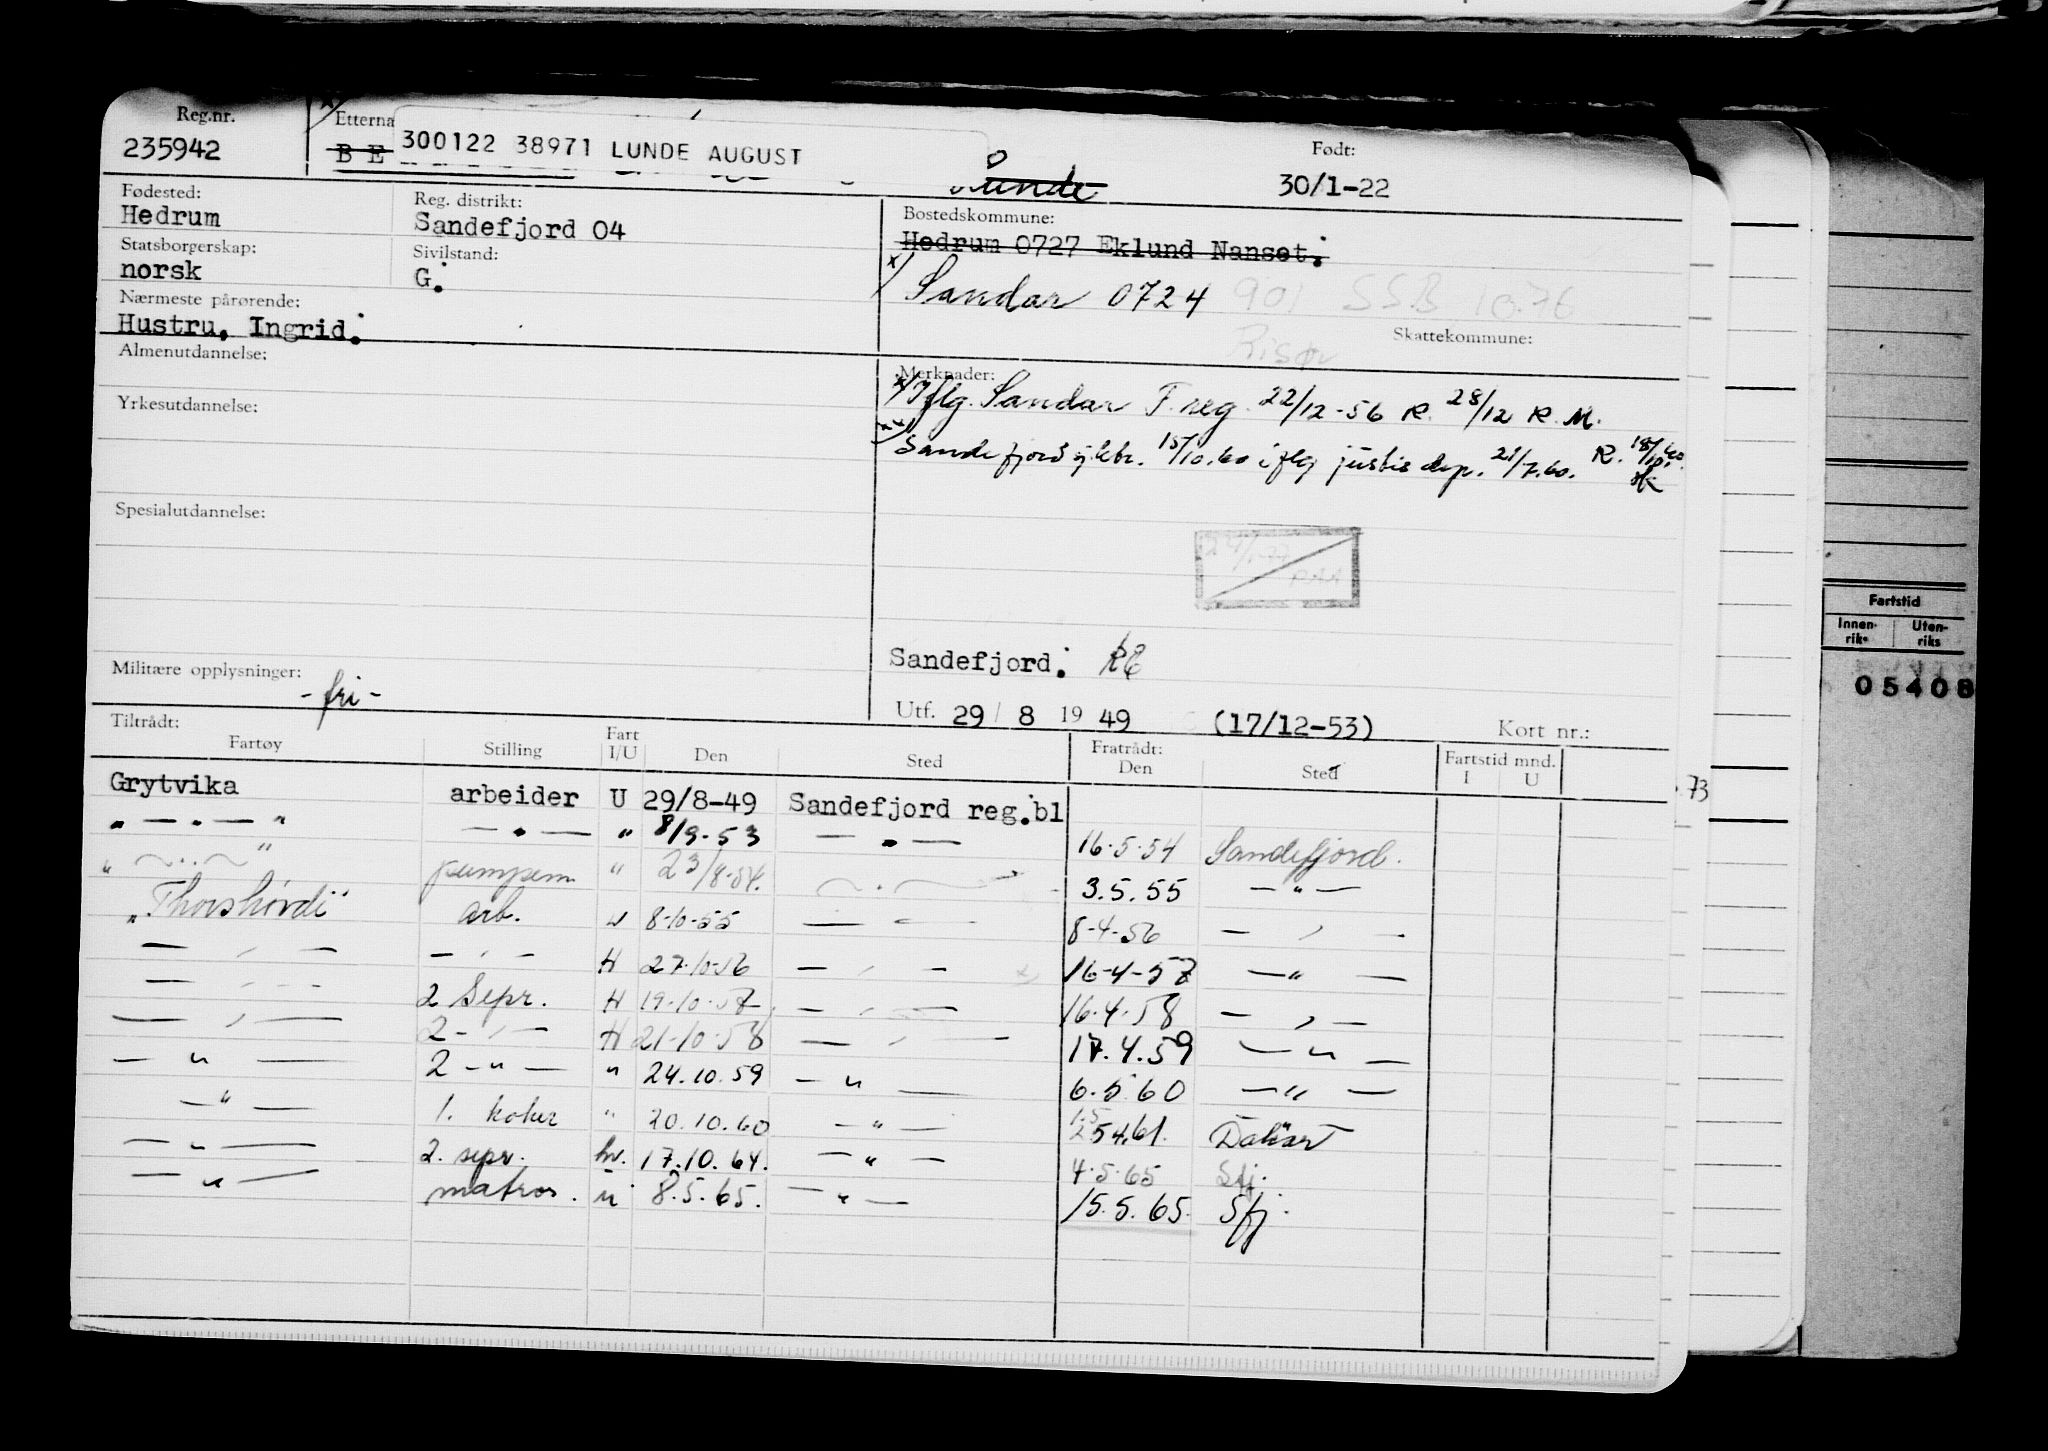 Reg.nr.
235942
Etterna
B E
300122 38971 LUNDE AUGUST
Lunde
Født:
30/1-22
Fødested:
Hedrum
Reg. distrikt:
Sandefjord 04
Bostedskommune:
Hedrum 0727 Eklund Nanset.
Statsborgerskap:
norsk
Sivilstand:
G.
x/ Sandar 0724 901 SSB 10.76
Risør
Skattekommune:
Nærmeste pårørende:
Hustru, Ingrid.
Almenutdannelse:
Merknader:
x/ Iflg. Sandar F.reg. 22/12-56 R. 28/12 R. M.
Yrkesutdannelse:
Sandefjord 15/10.60 iflg justisdep. 21/7.60. R.
Spesialutdannelse:
Sandefjord.
Militære opplysninger:
-fri-
Utf. 29/ 8 19 49 (17/12-53) Kort nr.:
Tiltrådt:
Fartøy Stilling Fart I/U Den Sted Fratrådt: Den Sted Fartstid mnd. I U
Grytvika arbeider U 29/8-49 Sandefjord reg.bl
" — " — " — " — " 8/9-53 — " — 16.5.54 Sandefjord.
" — " — " pumpem " 23/8-54. — " — 3.5.55 — " —
"Thorshövdi" arb. 8-10-55 — " — 8-4-56 — " —
— " — — " — H 27.10-56 — " — 16-4-57 — " —
— " — 2 Sepr. H 19.10.57 — " — 16.4.58 — " —
— " — 2 — " — H 21-10-58 — " — 17.4.59 — " —
— " — 2 — " — " 24.10.59 — " — 6.5.60 — " —
— " — 1. koker " 20.10.60 — " — Dakar
— " — 2. sepr. hv. 17.10.64. — " — 4.5.65 Sfj.
— " — matros. u 8.5.65. — " — 15.5.65. Sfj.
73
Fartstid
Innen-riks
Uten-riks
05408